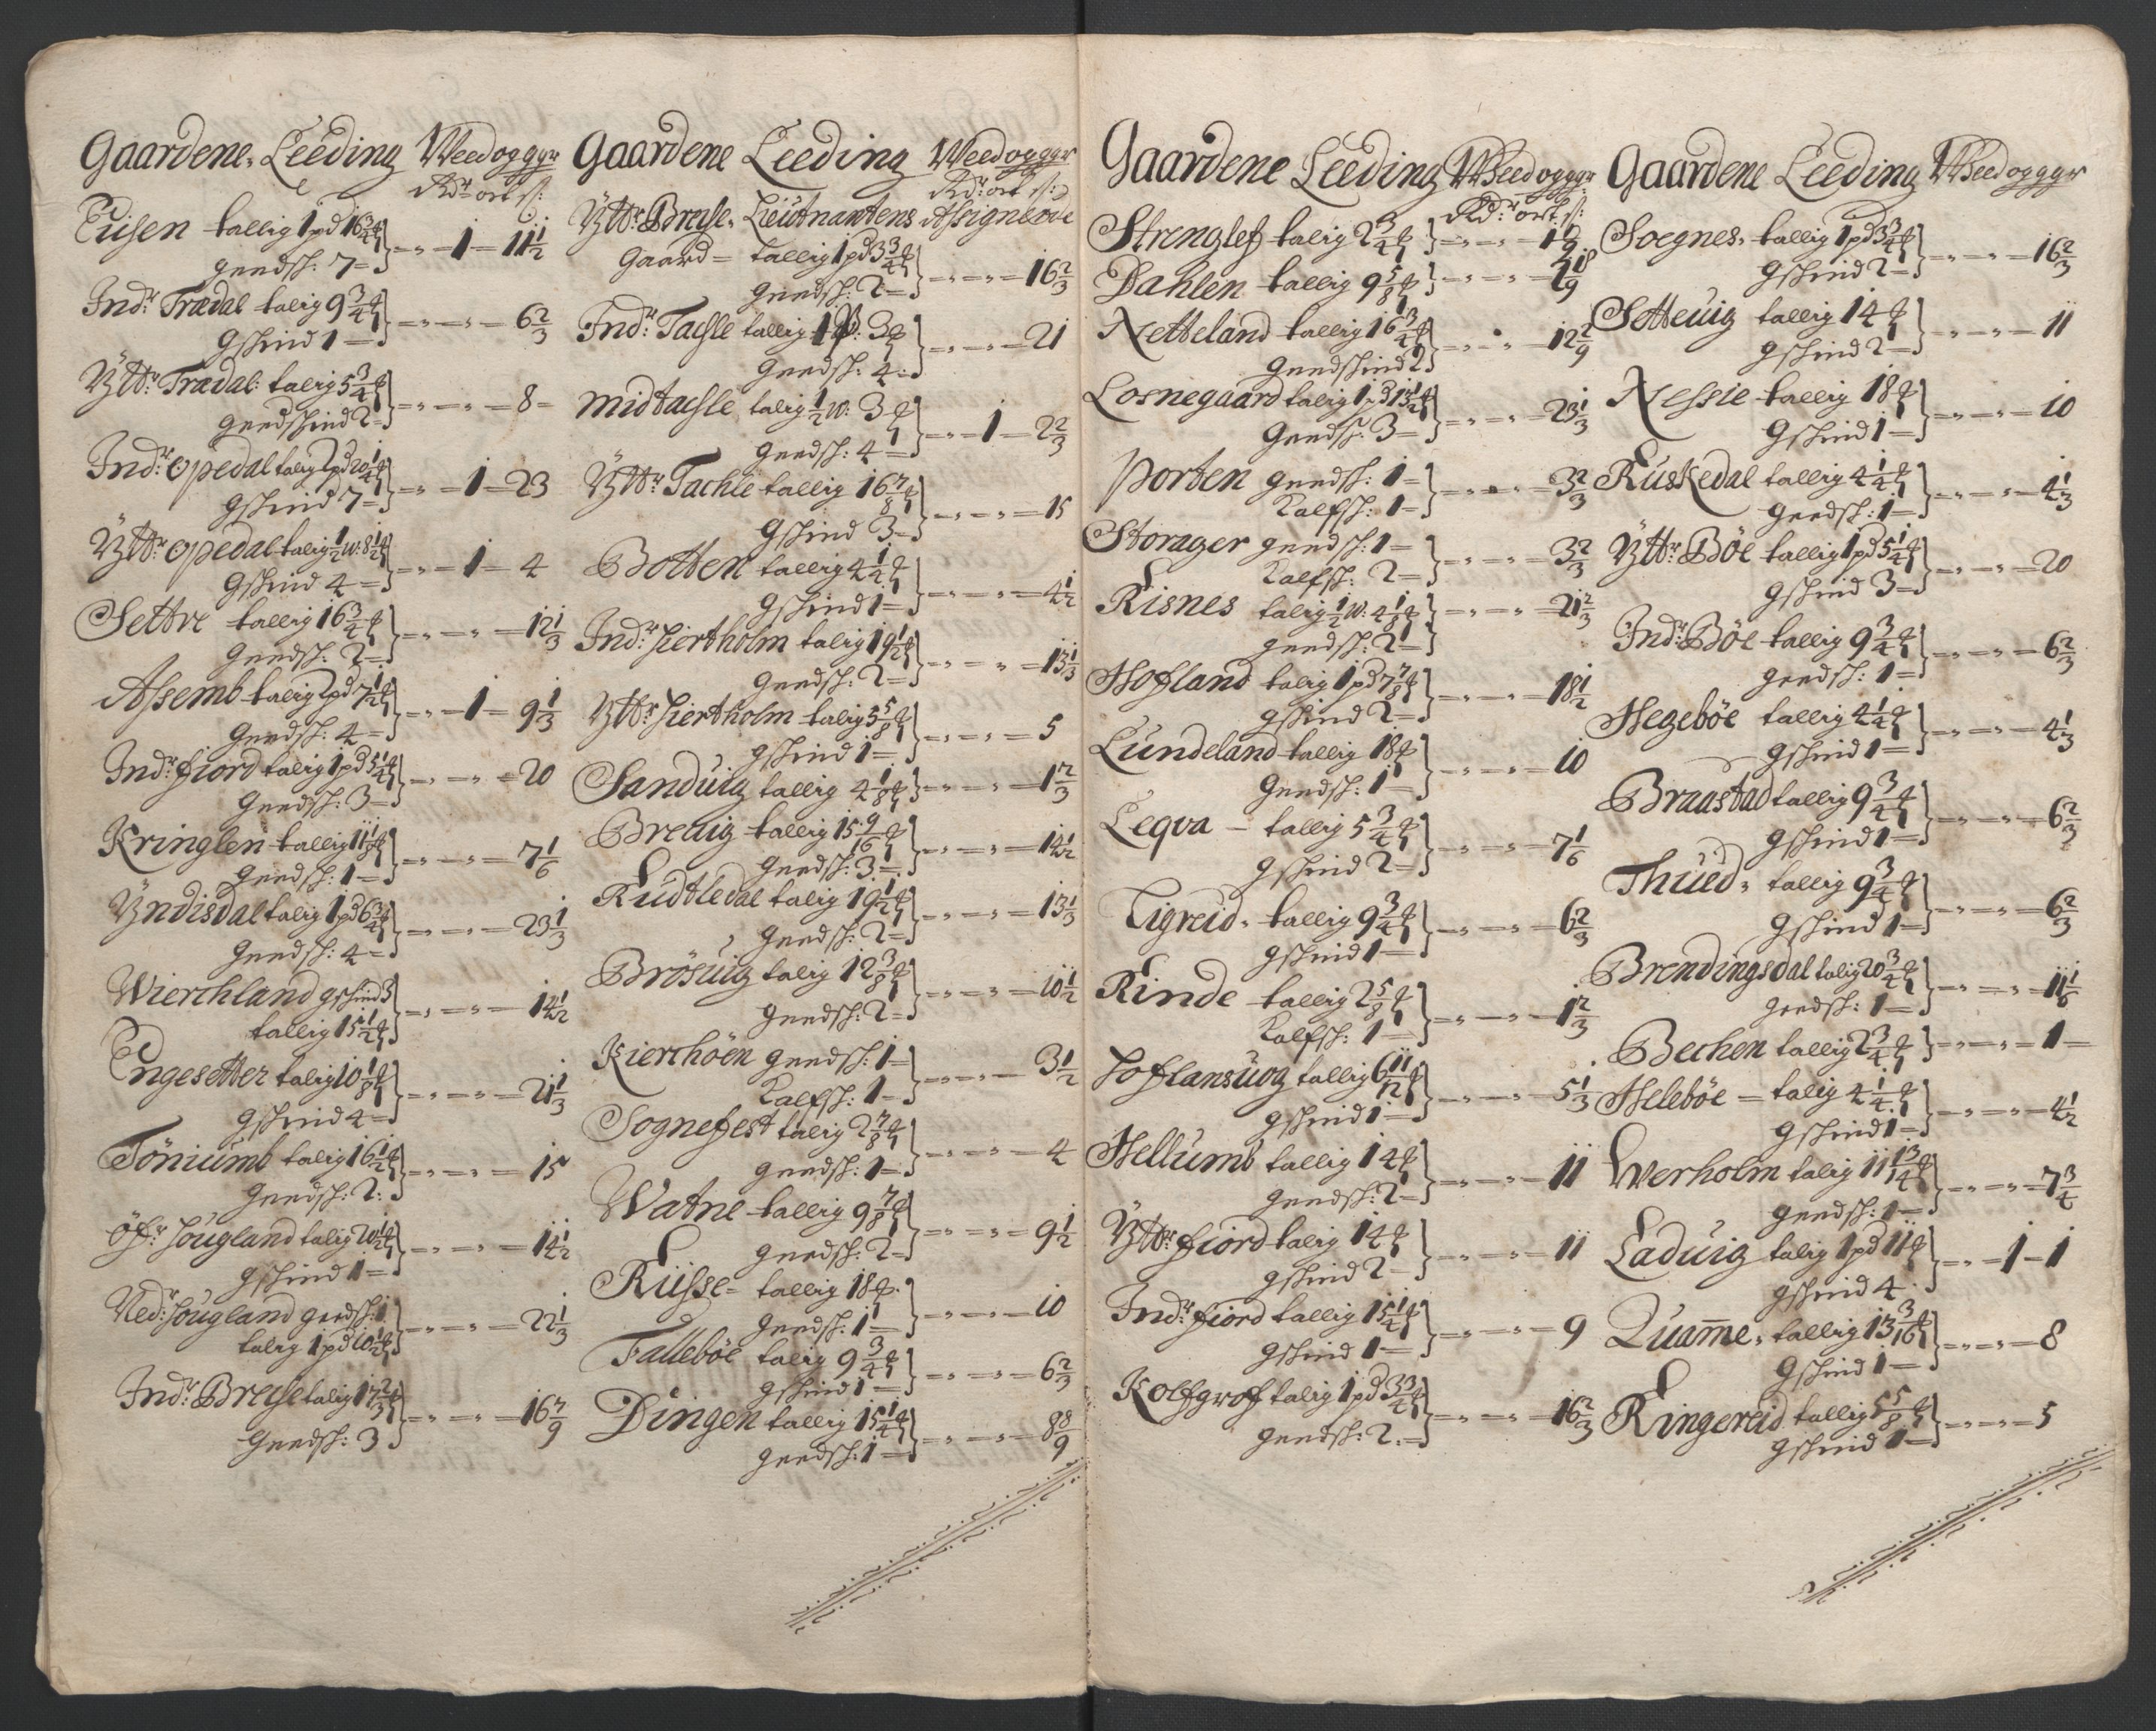 Gaardene. Leeding Weed og gyr
Rdr ort s:
Euisen tallig 1 pd 16 3/4 ℔
geedsk: 7 = } = " = 1 = 11 1/2
Indr Trædal talig 9 3/4 ℔
gskind 1 = } = " = " = 6 2/3
Yttr Trædal: talig 5 3/4 ℔
geedskind 2 = } = " = " = 8 =
Indr opedal talig 2 pd 20 1/4 ℔
gskind 7 = } = " = 1 = 23
Yttr opedal talig 1/2 w: 8 1/2 ℔
gskind 4 = } = " = 1 = 4
Settre tallig 16 3/4 ℔
geedsk: 2 = } = " = " = 12 1/3
Assemb talig 2 pd 7 1/2 ℔
geedsk: 4 = } = " = 1 = 9 1/3
Indr fiord talig 1 pd 5 1/4 ℔
geedsk: 3 = } = " = " = 20
Kringlen tallig 11 1/8 ℔
geedsk: 1 = } = " = " = 7 1/6
Yndisdal talig 1 pd 6 3/4 ℔
geedsk: 4 = } = " = " = 23 1/3
Wierchland gskind 3
tallig 15 1/2 ℔ } = " = " = 14 1/2
Engesetter talig 10 1/8 ℔
gskind 4 = } = " = " = 21 1/3
Töniumb talig 16 1/2 ℔
geedsk: 2: } = " = " = 15
öfr Hougland talig 20 1/2 ℔
gskind 1 = } = " = " = 14 1/2
Nedr Hougland geedsk: 1
talig 1 pd 10 1/2 ℔ } = " = " = 22 1/3
Indr Brejse talig 17 2/3 ℔
geedsk: 3 } = " = " = 16 7/9
Gaardene Leeding Weed og gyr
Rdr ort s:
Yttr Brejse. Lieutnantens Assignerede
gaard = tallig 1 pd 3 3/4 ℔
geedsk: 2 = } = " = " = 16 2/3
Indr Tachle tallig 1 pd: 3 ℔
geedsk: 4 = } = " = " = 21
midtachle talig 1/2 w: 3 ℔
geedsk: 4 = } = " = 1 = 2 2/3
Yttr Tachle tallig 16 7/8 ℔
gskind 3 = } = " = " = 15
Botten tallig 4 1/4 ℔
gskind 1 = } = " = " = 4 1/2
Indr Hiertholm talig 19 1/2 ℔
geedsk: 2 = } = " = " = 13 1/3
Yttr Hiertholm talig 5 5/8 ℔
gskind 1 = } = " = " = 5
Sanduig tallig 4 1/8 ℔ } = " = " = 1 2/3
Breuig tallig 15 9/16 ℔
geedsk: 3 = } = " = " = 14 1/2
Rudtledal talig 19 1/2 ℔
geedsk: 2 = } = " = " = 13 1/3
Brösuig talig 12 3/8 ℔
geedsk: 2 = } = " = " = 10 1/2
Kierchöen geedsk: 1 =
Kalfsk: 1 = } = " = " = 3 1/2
Sognefest talig 2 7/8 ℔
geedsk: 1 = } = " = " = 4
Watne tallig 9 7/8 ℔
geedsk: 2 = } = " = " = 9 1/2
Riisse = tallig 18 ℔
geedsk: 1 = } = " = " = 10
Falleböe talig 9 3/4 ℔
gskind 1 = } = " = " = 6 2/3
Dingen tallig 15 1/4 ℔
geedsk: 1 = } = " = " = 8 8/9
Gaardene Leeding Weed og gyr
Rdr ort s:
Strenglef talig 2 3/4 ℔ } = " = " = 1 1/9
Dahlen tallig 9 5/8 ℔ } = " = "
Netteland tallig 16 3/4 ℔
geedskind 2 } = " = " = 12 2/9
Losnegaard talig 1 pd 13 1/2 ℔
geedsk: 3 = } = " = " = 23 1/3
Porten geedsk: 1 =
Kalfsk: 1 = } = " = " = 3 2/3
Storager geedsk: 1 =
Kalfsk: 2 = } = " = " = 3 2/3
Risnes talig 1/2 w: 4 1/8 ℔
geedsk: 2 = } = " = " = 21 2/3
Hofland talig 1 pd 7 7/8 ℔
gskind 2 = } = " = " = 18 1/2
Lundeland tallig 18 ℔
geedsk: 1 = } = " = " = 10
Leqva — tallig 5 3/4 ℔
gskind 2 = } = " = " = 7 1/6
Tigreid. tallig 9 3/4 ℔
gskind 1 = } = " = " = 6 2/3
Rinde tallig 2 5/8 ℔
Kalfsk: 1 = } = " = " = 1 2/3
Hoflansuog tallig 6 11/12 ℔
gskind 1 = } = " = " = 5 1/3
Hellumb tallig 14 ℔
geedsk: 2 = } = " = " = 11
Yttr fiord talig 14 ℔
gskind 2 = } = " = " = 11
Indr fiord tallig 15 1/4 ℔
gskind 1 = } = " = " = 9
Kolfgrof talig 1 pd 3 3/4 ℔
geedsk: 2 = } = " = " = 16 2/3
Gaardene Leeding Weed og gyr
Soegnes. tallig 1 pd 3 3/4 ℔
gskind 2 = } = " = " = 16 2/3
Sotteuig tallig 14 ℔
gskind 2 = } = " = " = 11
Nessie tallig 18 ℔
gskind 1 = } = " = " = 10
Ruskedal tallig 4 1/4 ℔
geedsk: 1 = } = " = " = 4 1/3
Yttr Böe tallig 1 pd 5 1/4 ℔
gskind 3 = } = " = " = 20
Indr Böe tallig 9 3/4 ℔
geedsk: 1 = } = " = " = 6 2/3
Hegeböe tallig 4 1/4 ℔
gskind 1 = } = " = " = 4 1/3
Braastad tallig 9 3/4 ℔
gskind 1 = } = " = " = 6 2/3
Thued. tallig 9 3/4 ℔
gskind 1 = } = " = " = 6 2/3
Brendingsdal talig 20 3/4 ℔
geedsk: 1 = } = " = " = 11 1/6
Bechen tallig 2 3/4 ℔ } = " = " = 1 =
Heleböe = talig 4 1/4 ℔
gskind 1 = } = " = " = 4 1/2
Werholm talig 11 13/14 ℔
geedsk: 1 = } = " = " = 7 3/4
Laduig talig 1 pd 11 ℔
gskind 4 } = " = 1 = 1
Quamme. tallig 13 3/16 ℔
gskind 1 = } = " = " = 8
Ringereid tallig 5 5/8 ℔
gskind 1 = } = " = " = 5